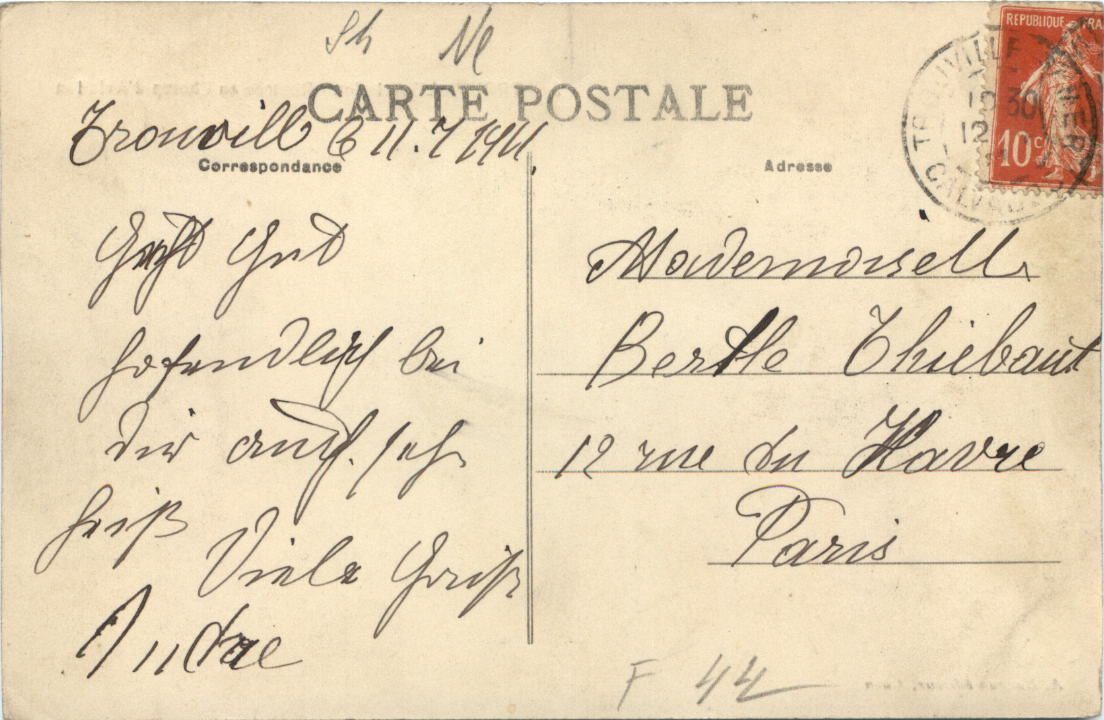 Sh Ne
CARTE POSTALE
Trouville 11.7.1911.
Correspondance
Geht Gut
hofendlich bei
dir auch. sehr
heiß
Viele Grüße
Andre
Adresse
Mademoiselle
Berthe Thiebaut
12 rue du Havre
Paris
F 44
REPUBLIQUE FRA
10c
TROUVILLE
CALVADOS
10 30
12